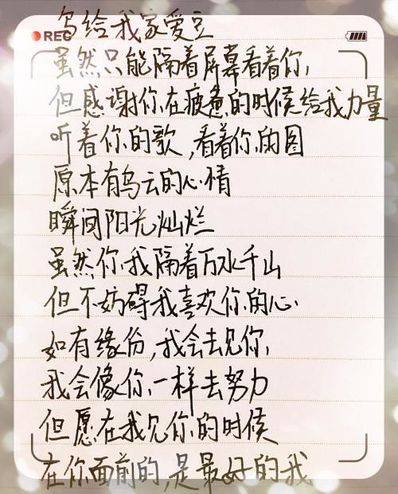 写给我家爱豆
REC
虽然只能隔着屏幕看着你,
但感谢你在疲惫的时候给我力量
听着你的歌,看着你的图
原本有乌云的心情
瞬间阳光灿烂
虽然你我隔着万水千山
但不妨碍我喜欢你的心.
如有缘份,我会去见你,
我会像你一样去努力
但愿在我见你的时候
在你面前的,是最好的我